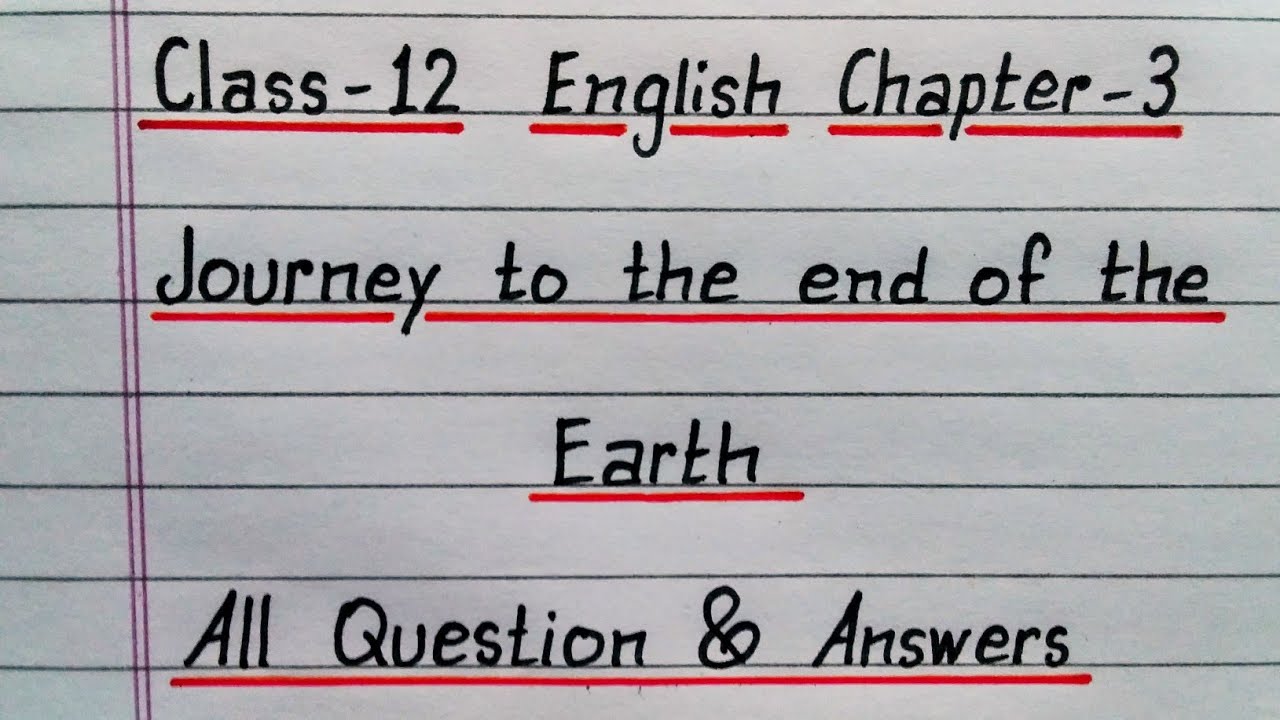 Class-12 English Chapter-3
Journey to the end of the
Earth
All Question & Answers